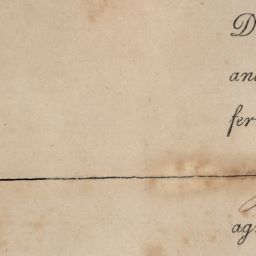 D
an
fer
ag